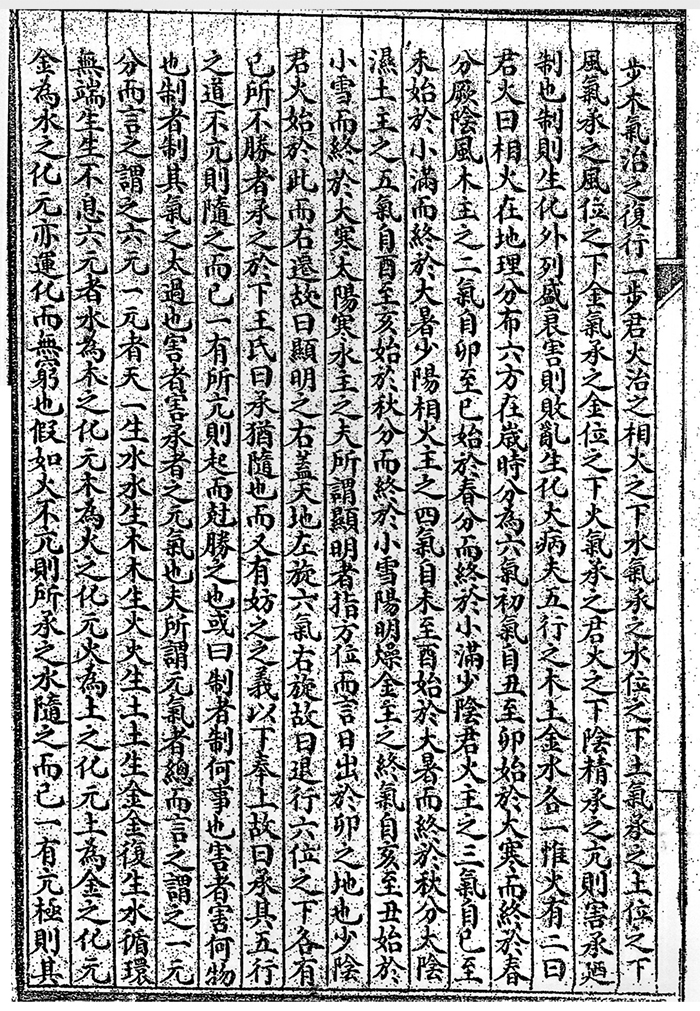 步木氣治之復行一步君火治之相火之下水氣承之水位之下土氣承之土位之下
風氣承之風位之下金氣承之金位之下火氣承之君火之下陰精承之亢則害承廼
制也制則生化外列盛衰害則敗亂生化大病夫五行之木土金水各一惟火有二曰
君火曰相火在地理分布六方在歲時分為六氣初氣自丑至卯始於大寒而終於春
分厥陰風木主之二氣自卯至巳始於春分而終於小滿少陰君火主之三氣自巳至
未始於小滿而終於大暑少陽相火主之四氣自未至酉始於大暑而終於秋分太陰
濕土主之五氣自酉至亥始於秋分而終於小雪陽明燥金主之終氣自亥至丑始於
小雪而終於大寒太陽寒水主之夫所謂顯明者指方位而言日出於卯之地也少陰
君火始於此而右還故曰顯明之右蓋天地左旋六氣右旋故曰退行六位之下各有
己所不勝者承之於下王氏曰承猶隨也而又有妨之之義以下奉上故曰承其五行
之道不亢則隨之而已一有所亢則起而尅勝之也或曰制者制何事也害者害何物
也制者制其氣之太過也害者害承者之元氣也夫所謂元氣者總而言之謂之一元
分而言之謂之六元一元者天一生水水生木木生火火生土土生金金復生水循環
無端生生不息六元者水為木之化元木為火之化元火為土之化元土為金之化元
金為水之化元亦運化而無窮也假如火不亢則所承之水隨之而已一有亢極則其